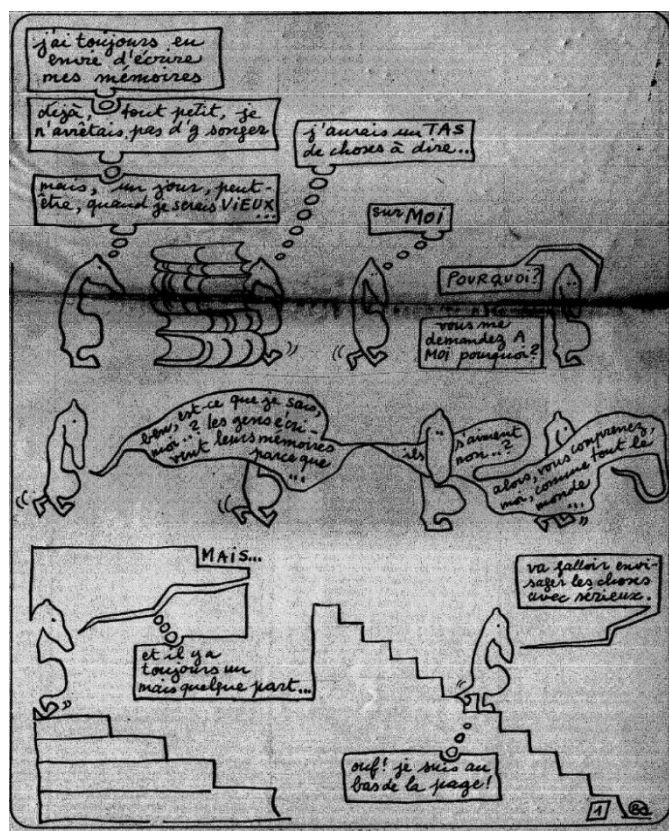 j'ai toujours eu
envie d'écrire
mes mémoires
déjà, tout petit, je
n'arrêtais pas d'y songer
mais, un jour, peut-
être, quand je serais VIEUX
...
j'aurais un TAS
de choses à dire...
sur MOI
POURQUOI?
vous me
demandez A
MOI pourquoi?
ben, est-ce que je sais,
moi...? les gens écri-
vent leurs mémoires
parce que
...
ils
s'aiment
non..?
alors, vous comprenez,
moi, comme tout le
monde
...
MAIS...
et il y a
toujours un
mais quelque part...
va falloir envi-
sager les choses
avec sérieux.
ouf! je suis au
bas de la page!
1